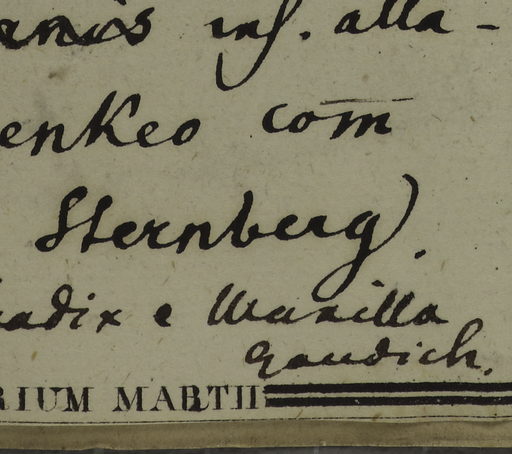 rnis ins. alla-
enkeo com̅
Sternberg).
radix e Manilla
Gaudich.
RIUM MARTII